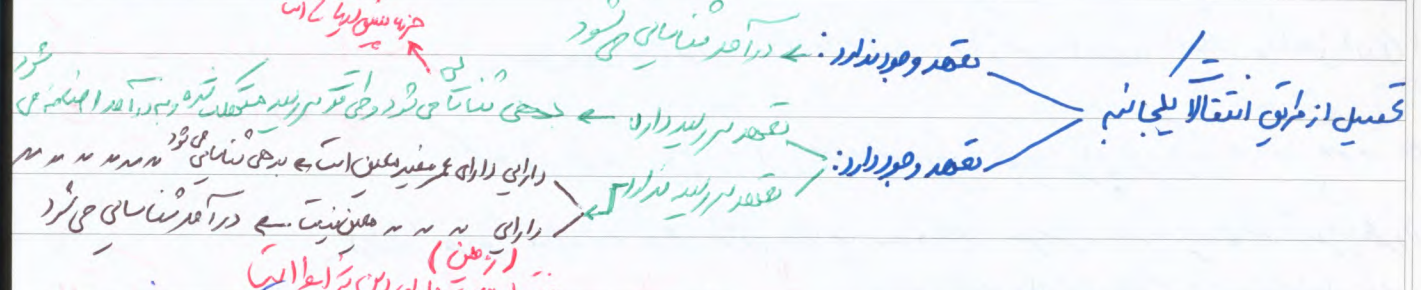 تحصیل از طریق انتقالات یکجانبه
تعهد وجود ندارد: ← درآمد شناسایی می‌شود
تعهد وجود دارد:
تعهد سررسید دارد ← بدهی شناسایی می‌شود و طی سررسید مستهلک شده و به درآمد اضافه می‌شود
تعهد سررسید ندارد ←
دارایی دارای عمر مفید معین است ← بدهی شناسایی می‌شود 〃 〃 〃 〃 〃
دارایی 〃 〃 〃 معین نیست ← درآمد شناسایی می‌شود
(زمین)